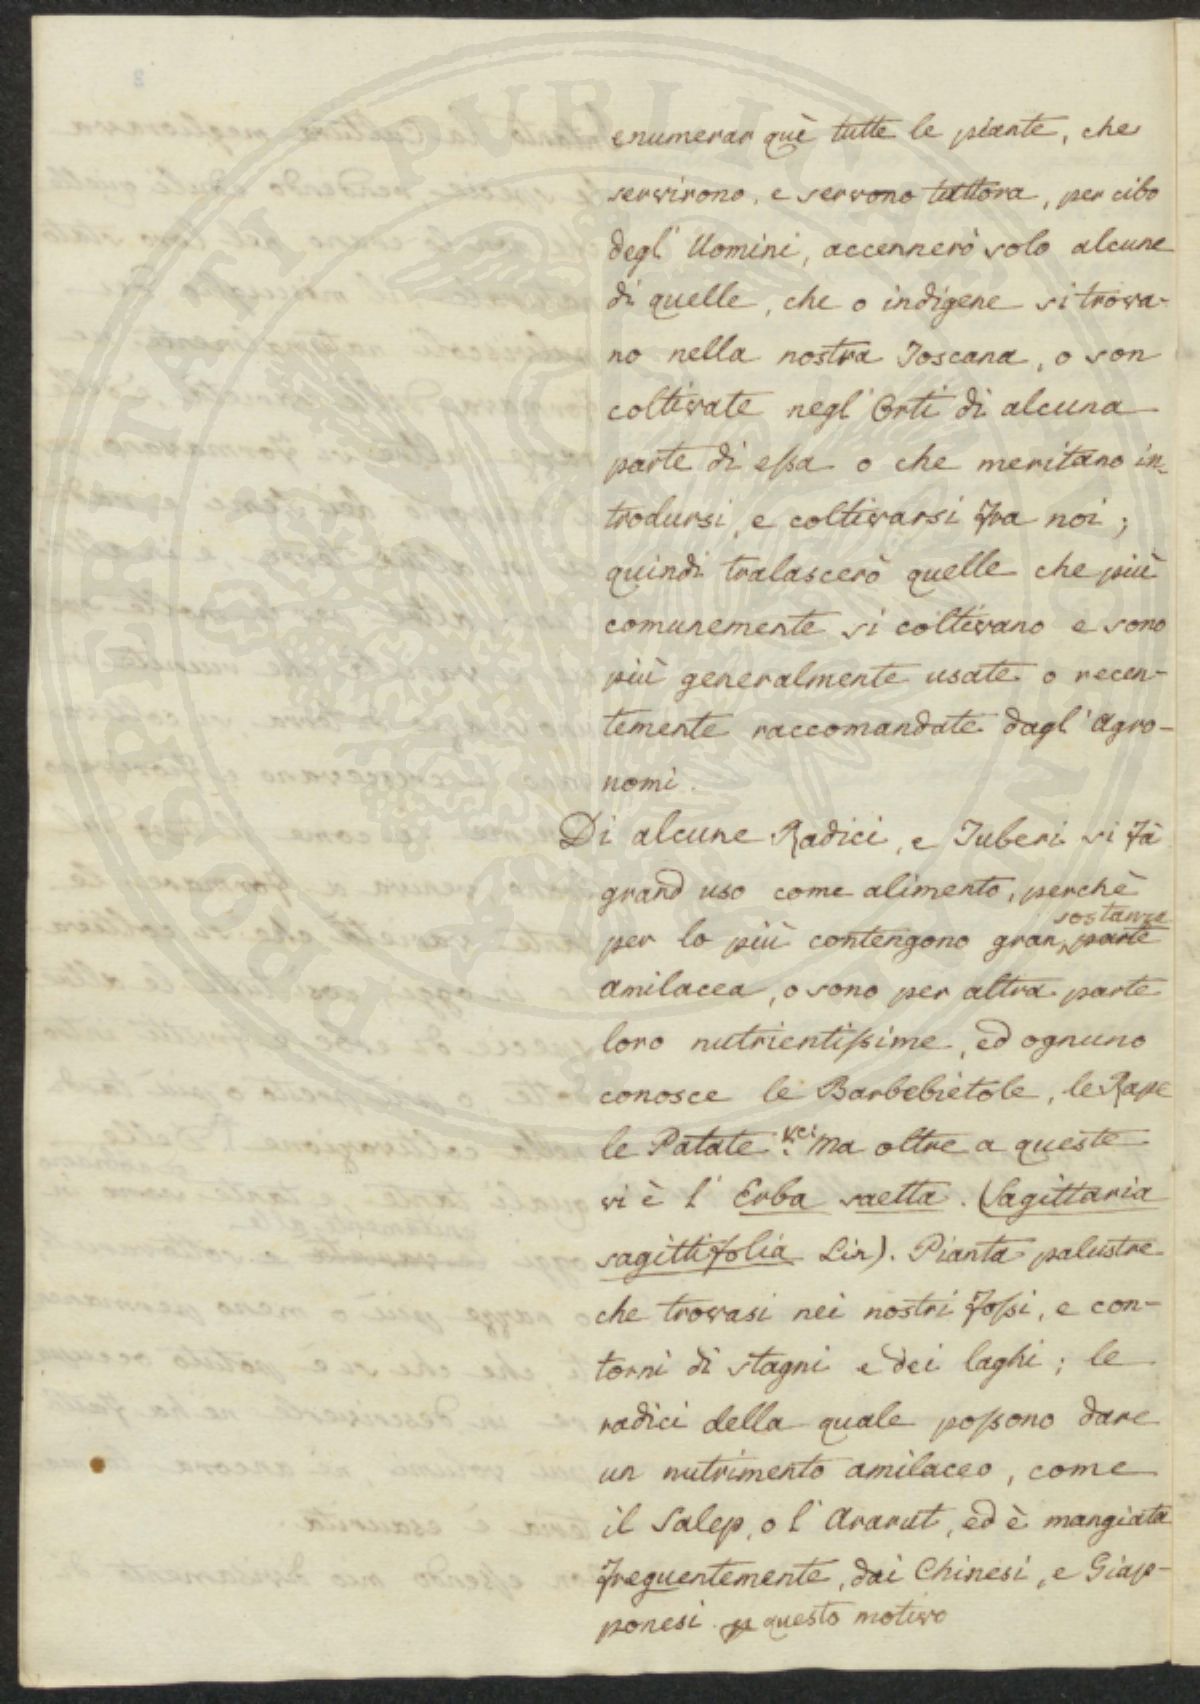 enumerar quì tutte le piante, che
servirono, e servono tuttora, per cibo
degl' Uomini, accennerò solo alcune
di quelle, che o indigene si trova-
no nella nostra Toscana, o son
coltivate negl' Orti di alcuna
parte di essa o che meritano in-
trodursi, e coltivarsi fra noi;
quindi tralascerò quelle che più
comunemente si coltivano e sono
più generalmente usate o recen-
temente raccomandate dagl' Agro-
nomi.
Di alcune Radici, e Tuberi si fà
grand uso come alimento, perchè
sostanza
per lo più contengono gran parte
amilacea, o sono per altra parte
loro nutrientissime, ed ognuno
conosce le Barbebietole, le Rape
le Patate &c: Ma oltre a queste
vi è l' Erba saetta. (Sagittaria
sagittifolia Lin). Pianta palustre
che trovasi nei nostri fossi, e con-
torni di stagni e dei laghi; le
radici della quale possono dare
un nutrimento amilaceo, come
il Salep, o l' Ararut, ed è mangiata
frequentemente, dai Chinesi, e Giap-
ponesi. p questo motivo